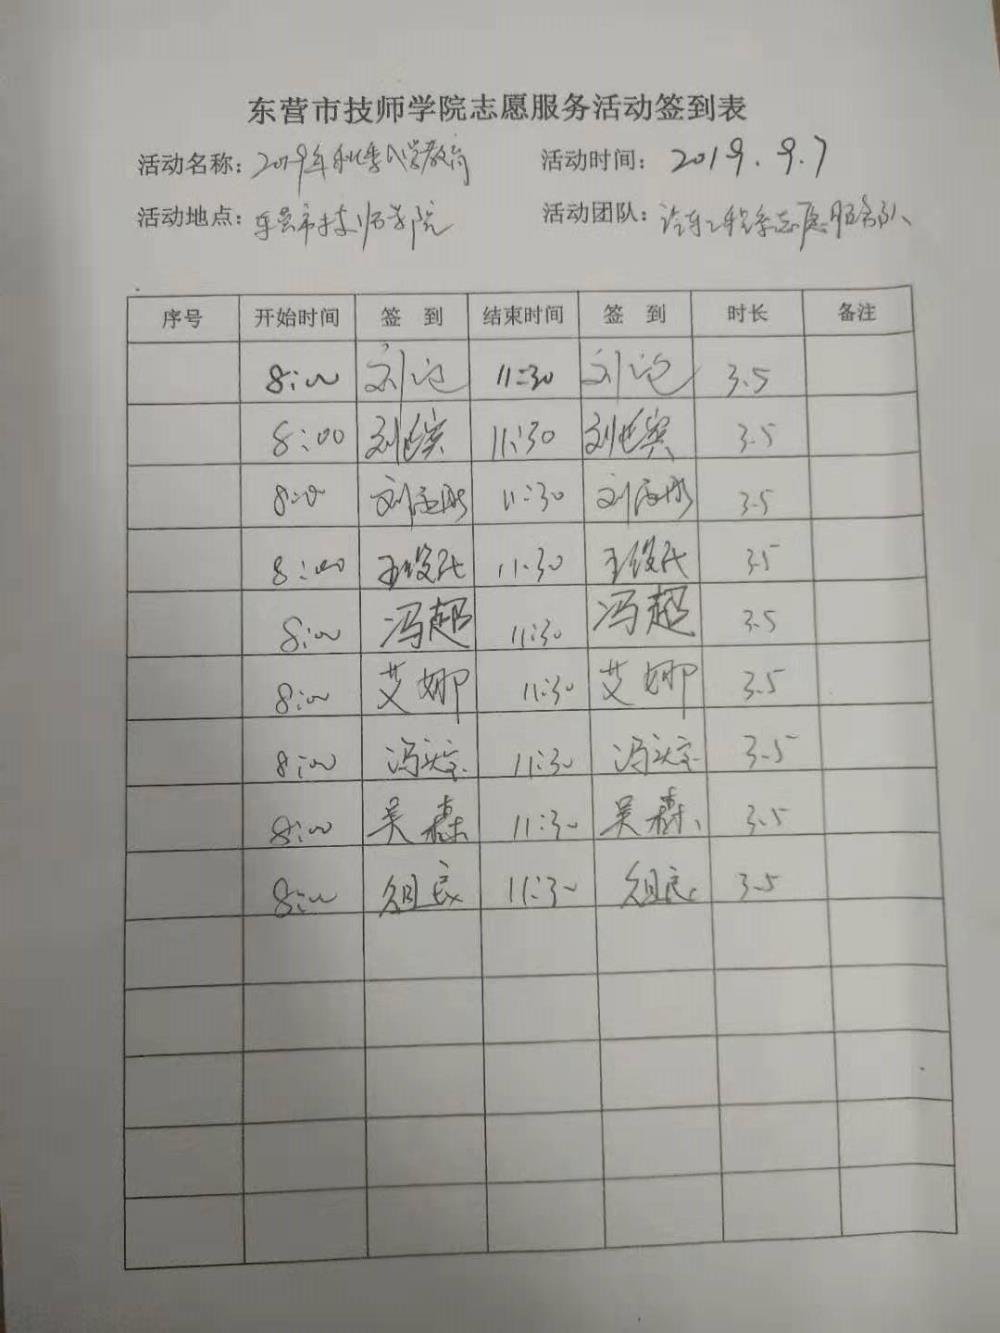 东营市技师学院志愿服务活动签到表
活动名称: 2019年秋季入学教育 活动时间: 2019.9.7
活动地点: 东营市技师学院 活动团队: 汽车工程系志愿服务队
序号 开始时间 签到 结束时间 签到 时长 备注
8:00 刘 11:30 刘 3.5
8:00 刘 11:30 刘 3.5
8:00 刘 11:30 刘 3.5
8:00 王俊民 11:30 王俊民 3.5
8:00 冯超 11:30 冯超 3.5
8:00 艾娜 11:30 艾娜 3.5
8:00 冯 11:30 冯 3.5
8:00 吴森 11:30 吴森 3.5
8:00 11:30 3.5